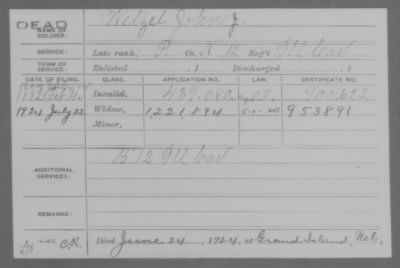 DEAD
NAME OF SOLDIER: Wetzel John J.
SERVICE: Late rank, P. Co. K, 12 Reg't Ill Cav
TERM OF SERVICE: Enlisted , 1 Discharged , 1
DATE OF FILING. CLASS. APPLICATION NO. LAW. CERTIFICATE NO.
Invalid, 439.080
1924 July 22 Widow, 1,221,894 5-1-20 953891
Minor,
ADDITIONAL SERVICES: B 12 Ill Cav
REMARKS:
C.R. Died June 24, 1924, at Grand Island, Neb.